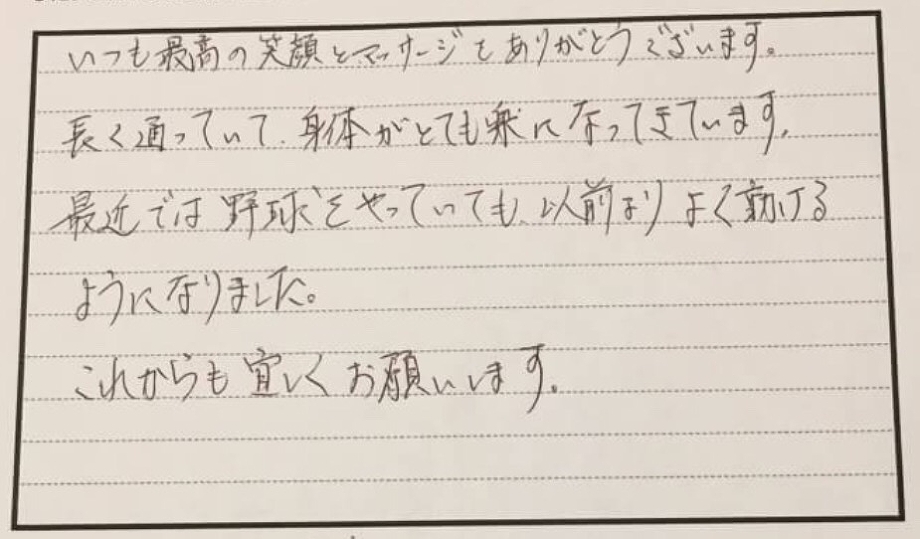 いつも最高の笑顔とマッサージをありがとうございます。
長く通っていて、身体がとても楽になってきています。
最近では野球をやっていても、以前よりよく動ける
ようになりました。
これからも宜しくお願いします。